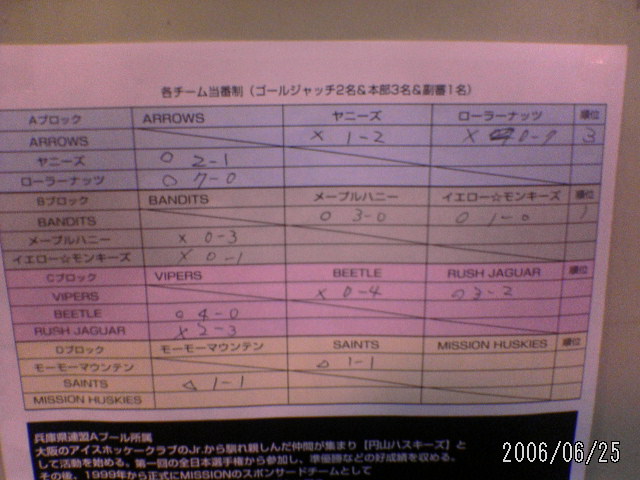 各チーム当番制（ゴールジャッチ2名&本部3名&副審1名）
Aブロック ARROWS ヤニーズ ローラーナッツ 順位
ARROWS × 1-2 × 0-7 3
ヤニーズ ○ 2-1
ローラーナッツ ○ 7-0
Bブロック BANDITS メープルハニー イエロー☆モンキーズ 順位
BANDITS ○ 3-0 ○ 1-0 1
メープルハニー × 0-3
イエロー☆モンキーズ × 0-1
Cブロック VIPERS BEETLE RUSH JAGUAR 順位
VIPERS × 0-4 ○ 3-2
BEETLE ○ 4-0
RUSH JAGUAR × 2-3
Dブロック モーモーマウンテン SAINTS MISSION HUSKIES 順位
モーモーマウンテン △ 1-1
SAINTS △ 1-1
MISSION HUSKIES
兵庫県連盟Aプール所属
大阪のアイスホッケークラブのJr.から馴れ親しんだ仲間が集まり【円山ハスキーズ】と
して活動を始める。第一回の全日本選手権から参加し、準優勝などの好成績を収める。
その後、1999年から正式にMISSIONのスポンサードチームとして
2006/06/25